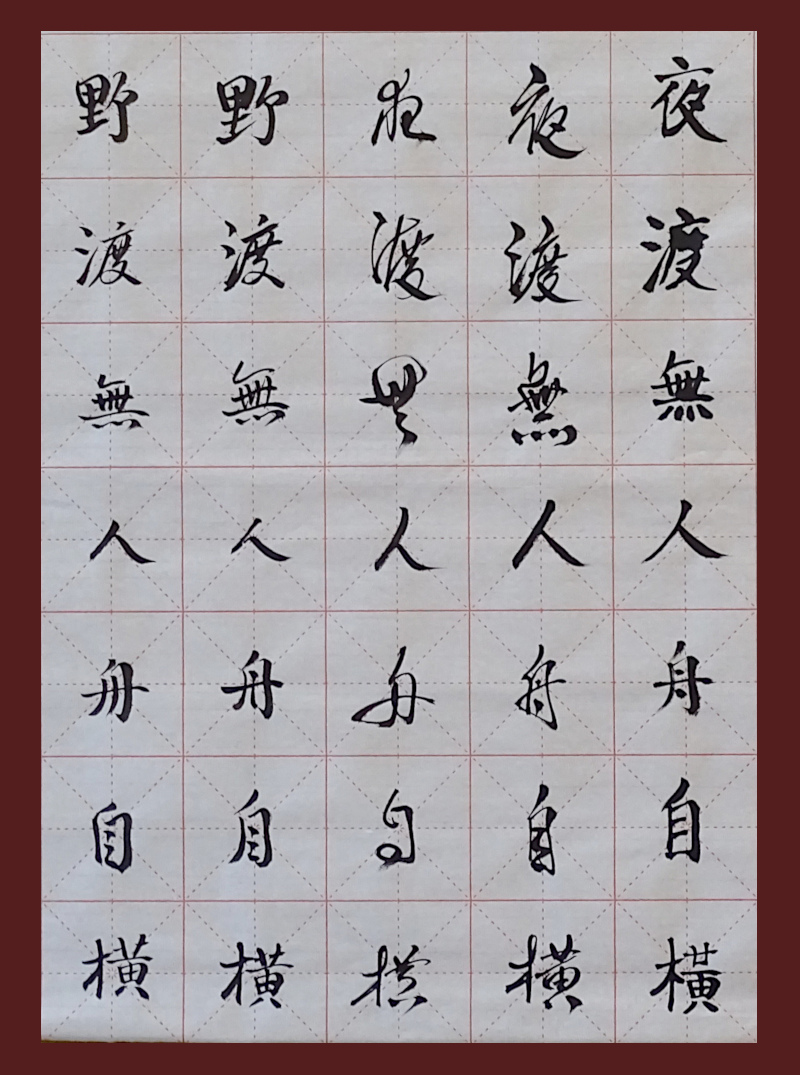 夜渡無人舟自橫
夜渡無人舟自横
夜渡無人舟自横
野渡無人舟自横
野渡無人舟自横